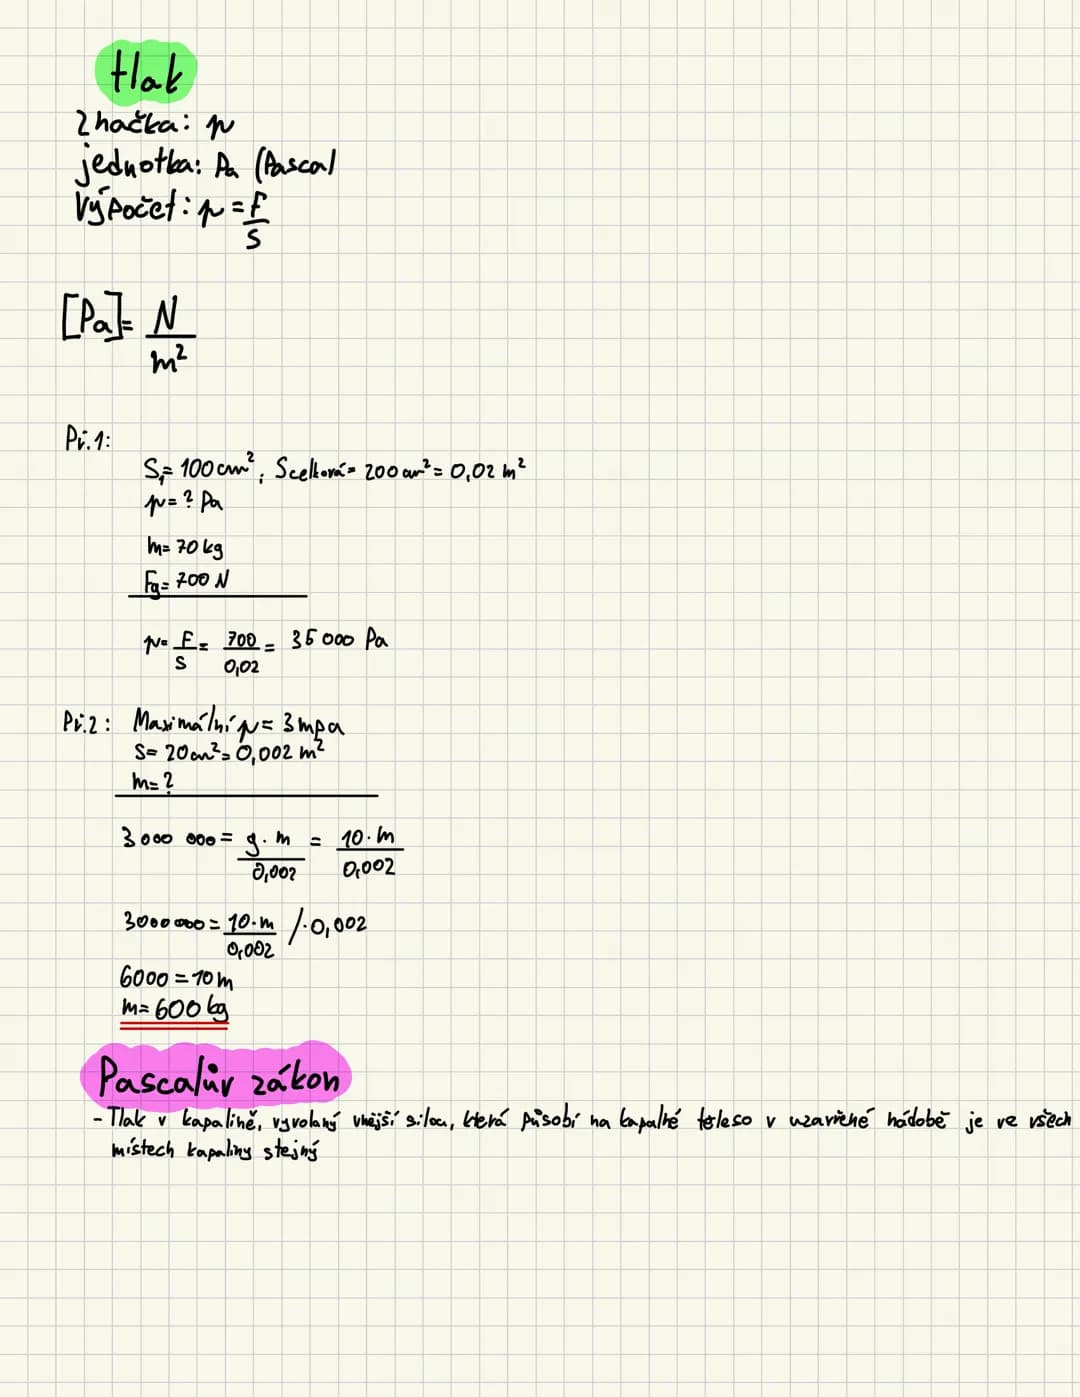 tlak
Značka: p
jednotka: Pa (Pascal
Výpočet: p = F/S
[Pa] = N/m²
Př.1:
S₁= 100 cm², Scelková= 200 cm² = 0,02 m²
p = ? Pa
m= 70 kg
Fg= 700 N
p= F/S = 700/0,02 = 35 000 Pa
Př.2: Maximální p = 3 mpa
S= 20 cm² = 0,002 m²
m= ?
3 000 000 = g·m/0,002 = 10·m/0,002
3000 000 = 10·m/0,002 /·0,002
6000 = 10 m
m= 600 kg
Pascalův zákon
- Tlak v kapalině, vyvolaný vnější silou, která působí na kapalné těleso v uzavřené nádobě je ve všech
místech kapaliny stejný